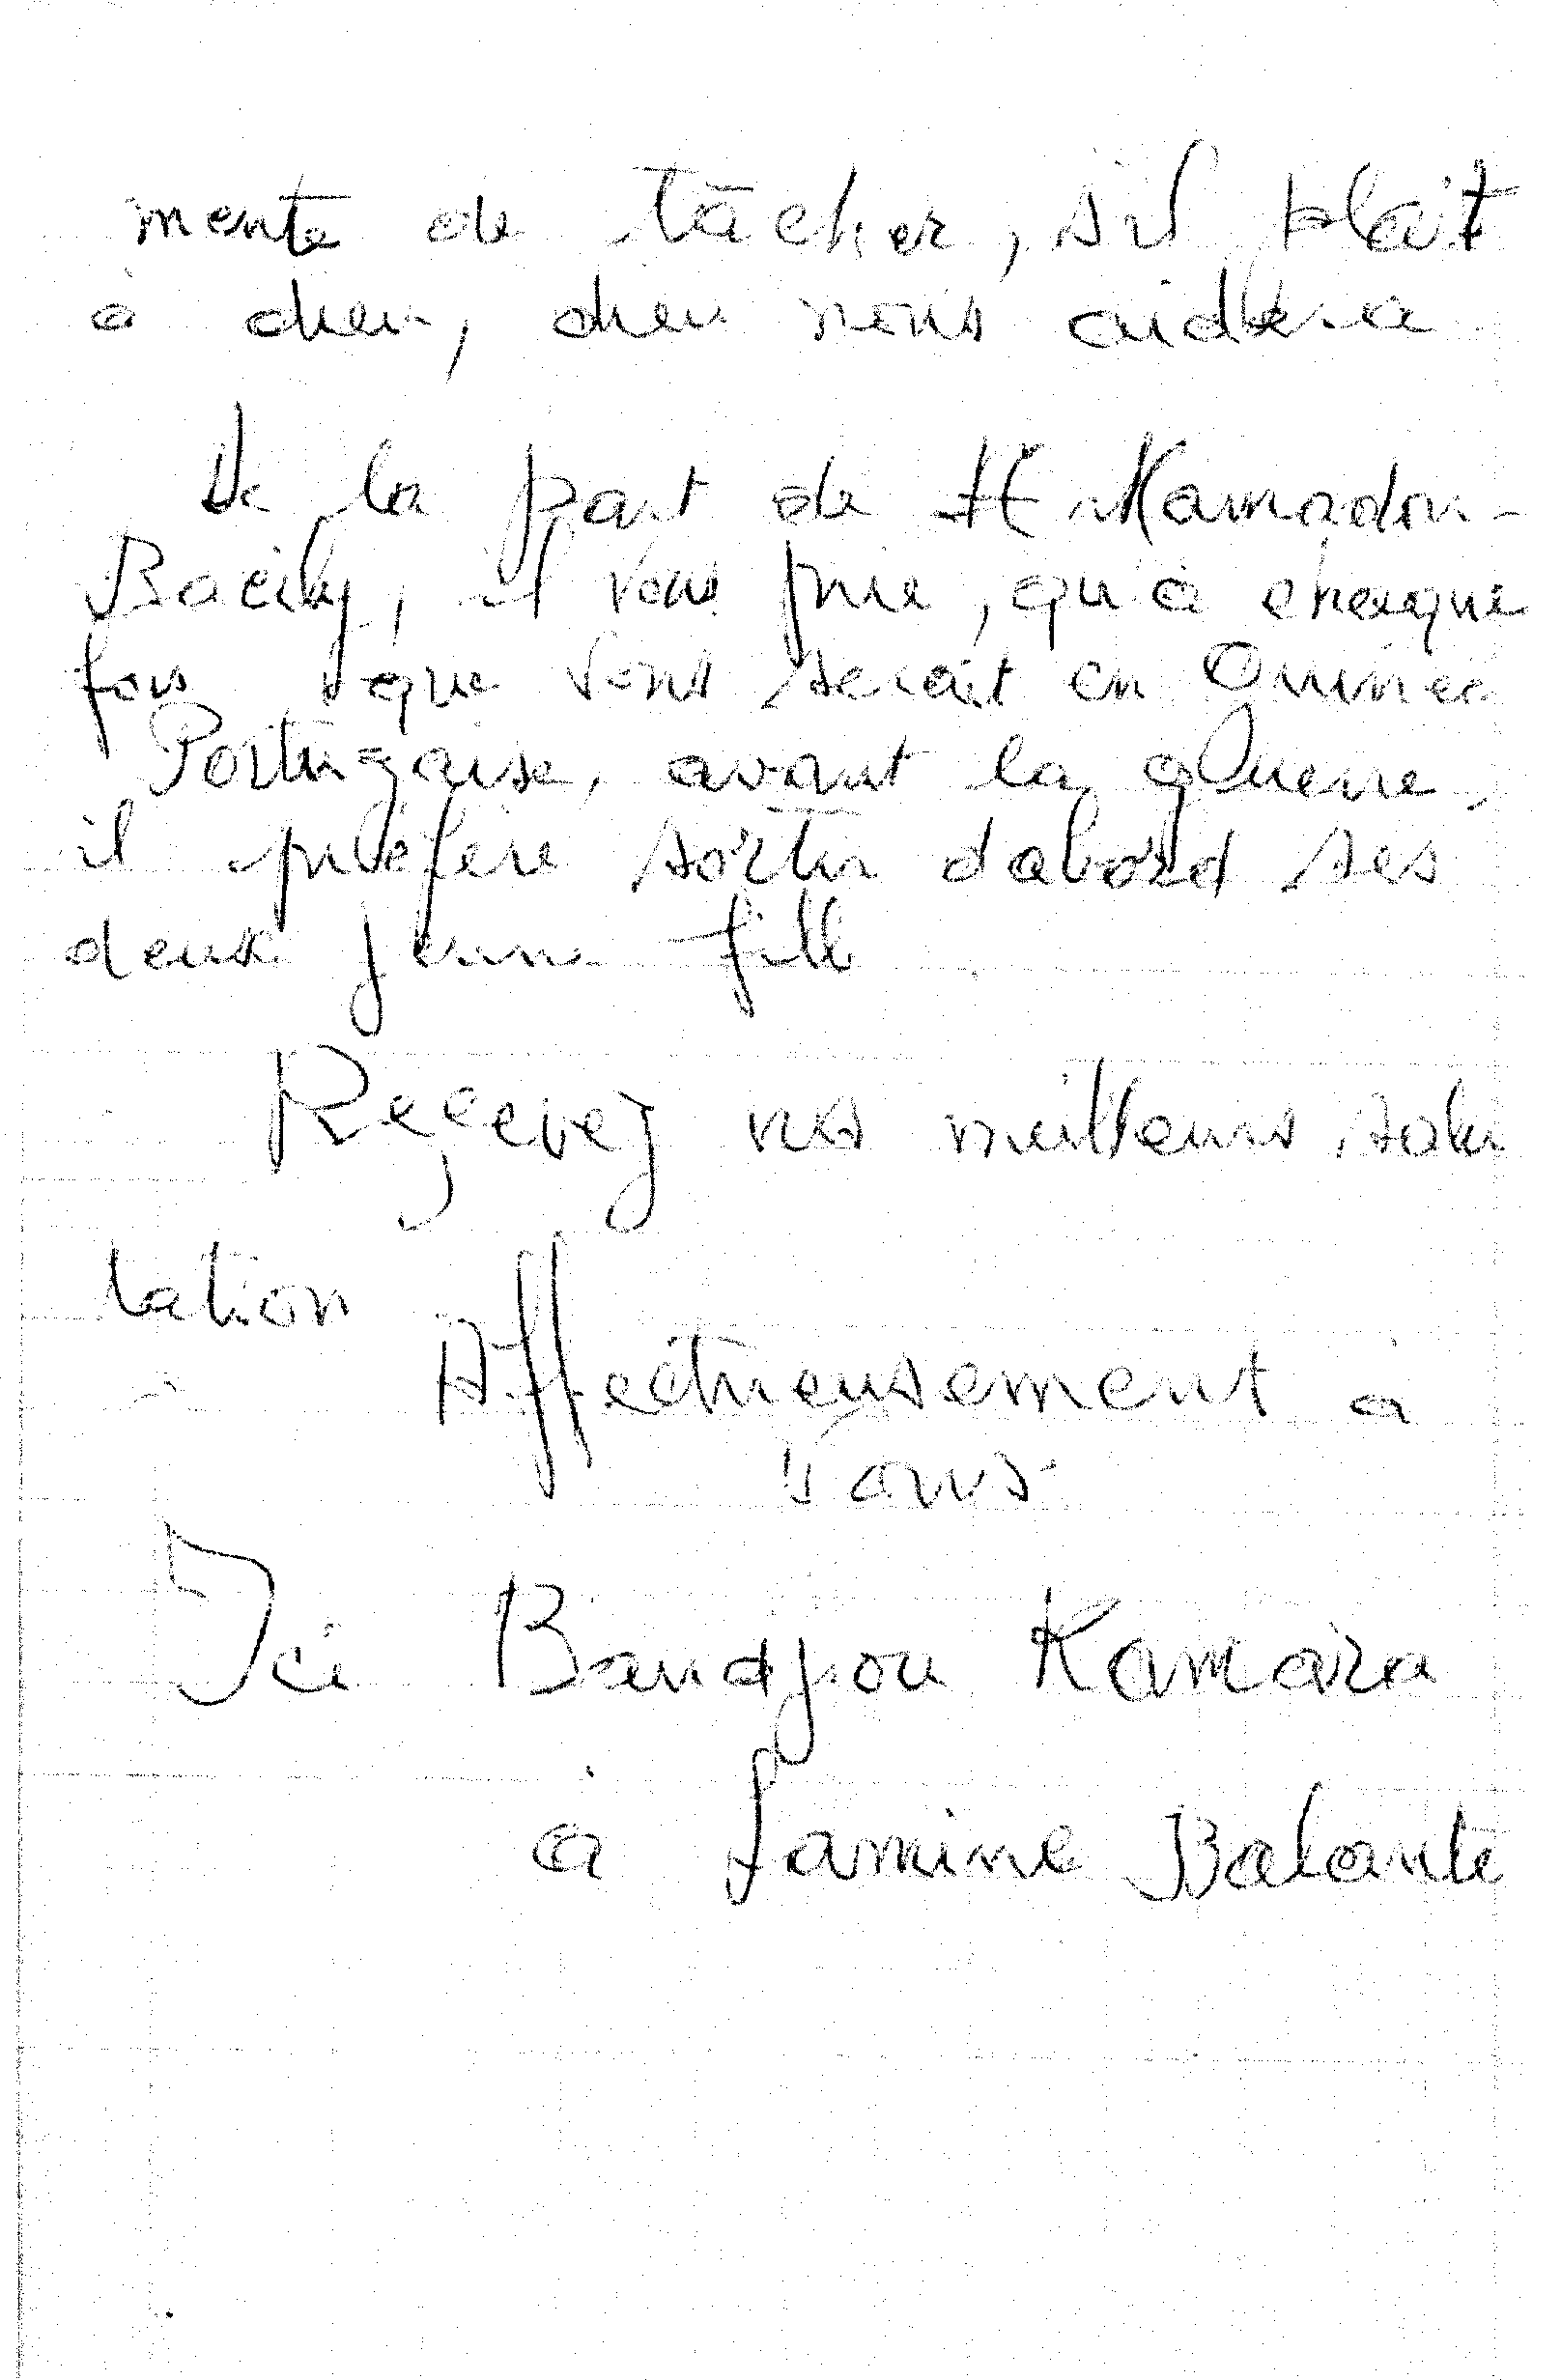 mente de tâcher, s'il plaît
à dieu, dieu nous aidera
De la part de H Mamadou
Bacily, il vous prie, qu'à chaque
fois que vous serait en Guinée
Portugaise, avant la guerre,
il préfère sortir dabord ses
deux jeune fille
Reçevez nos meilleurs salu
tation
Affectueusement à
vous
Ici Bandjou Kamara
à Lamine Balante